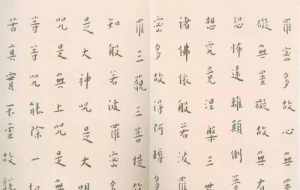 羅密多故心無罣
礙無罣礙故無有
恐怖遠離顛倒夢
想究竟涅槃三世
諸佛依般若波羅
密多故得阿耨多
羅三藐三菩提故
知般若波羅密多
是大神咒是大明
咒是無上咒是無
等等咒能除一切
苦真實不虛故